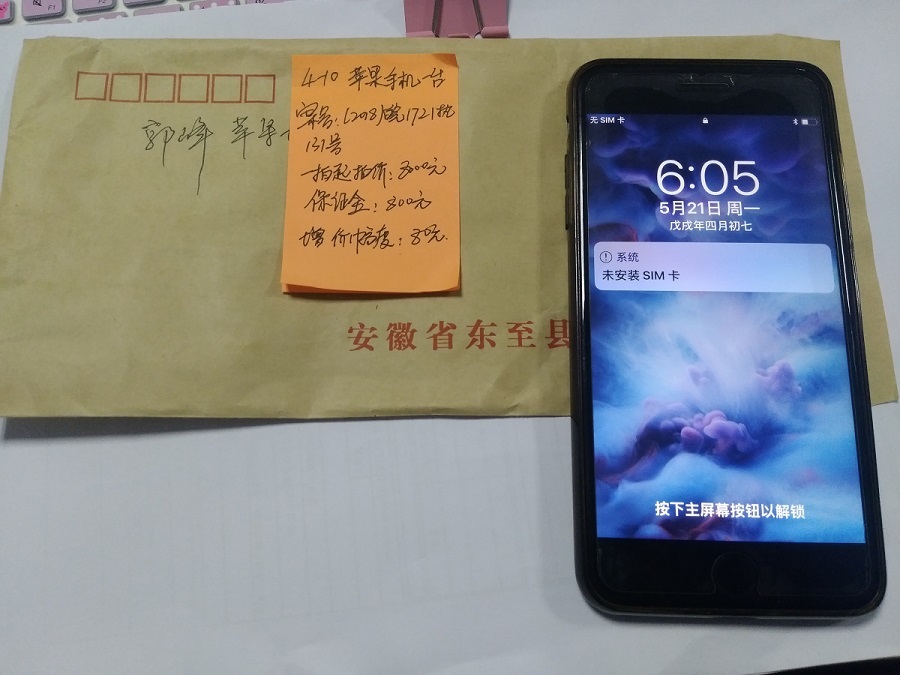 郭峰 苹果
4-10 苹果手机一台
案号:(2018)皖1721执
131号
一拍起拍价:800元
保证金:800元
增价幅度:80元.
安徽省东至县
无 SIM 卡
6:05
5月21日 周一
戊戌年四月初七
系统
未安装 SIM 卡
按下主屏幕按钮以解锁